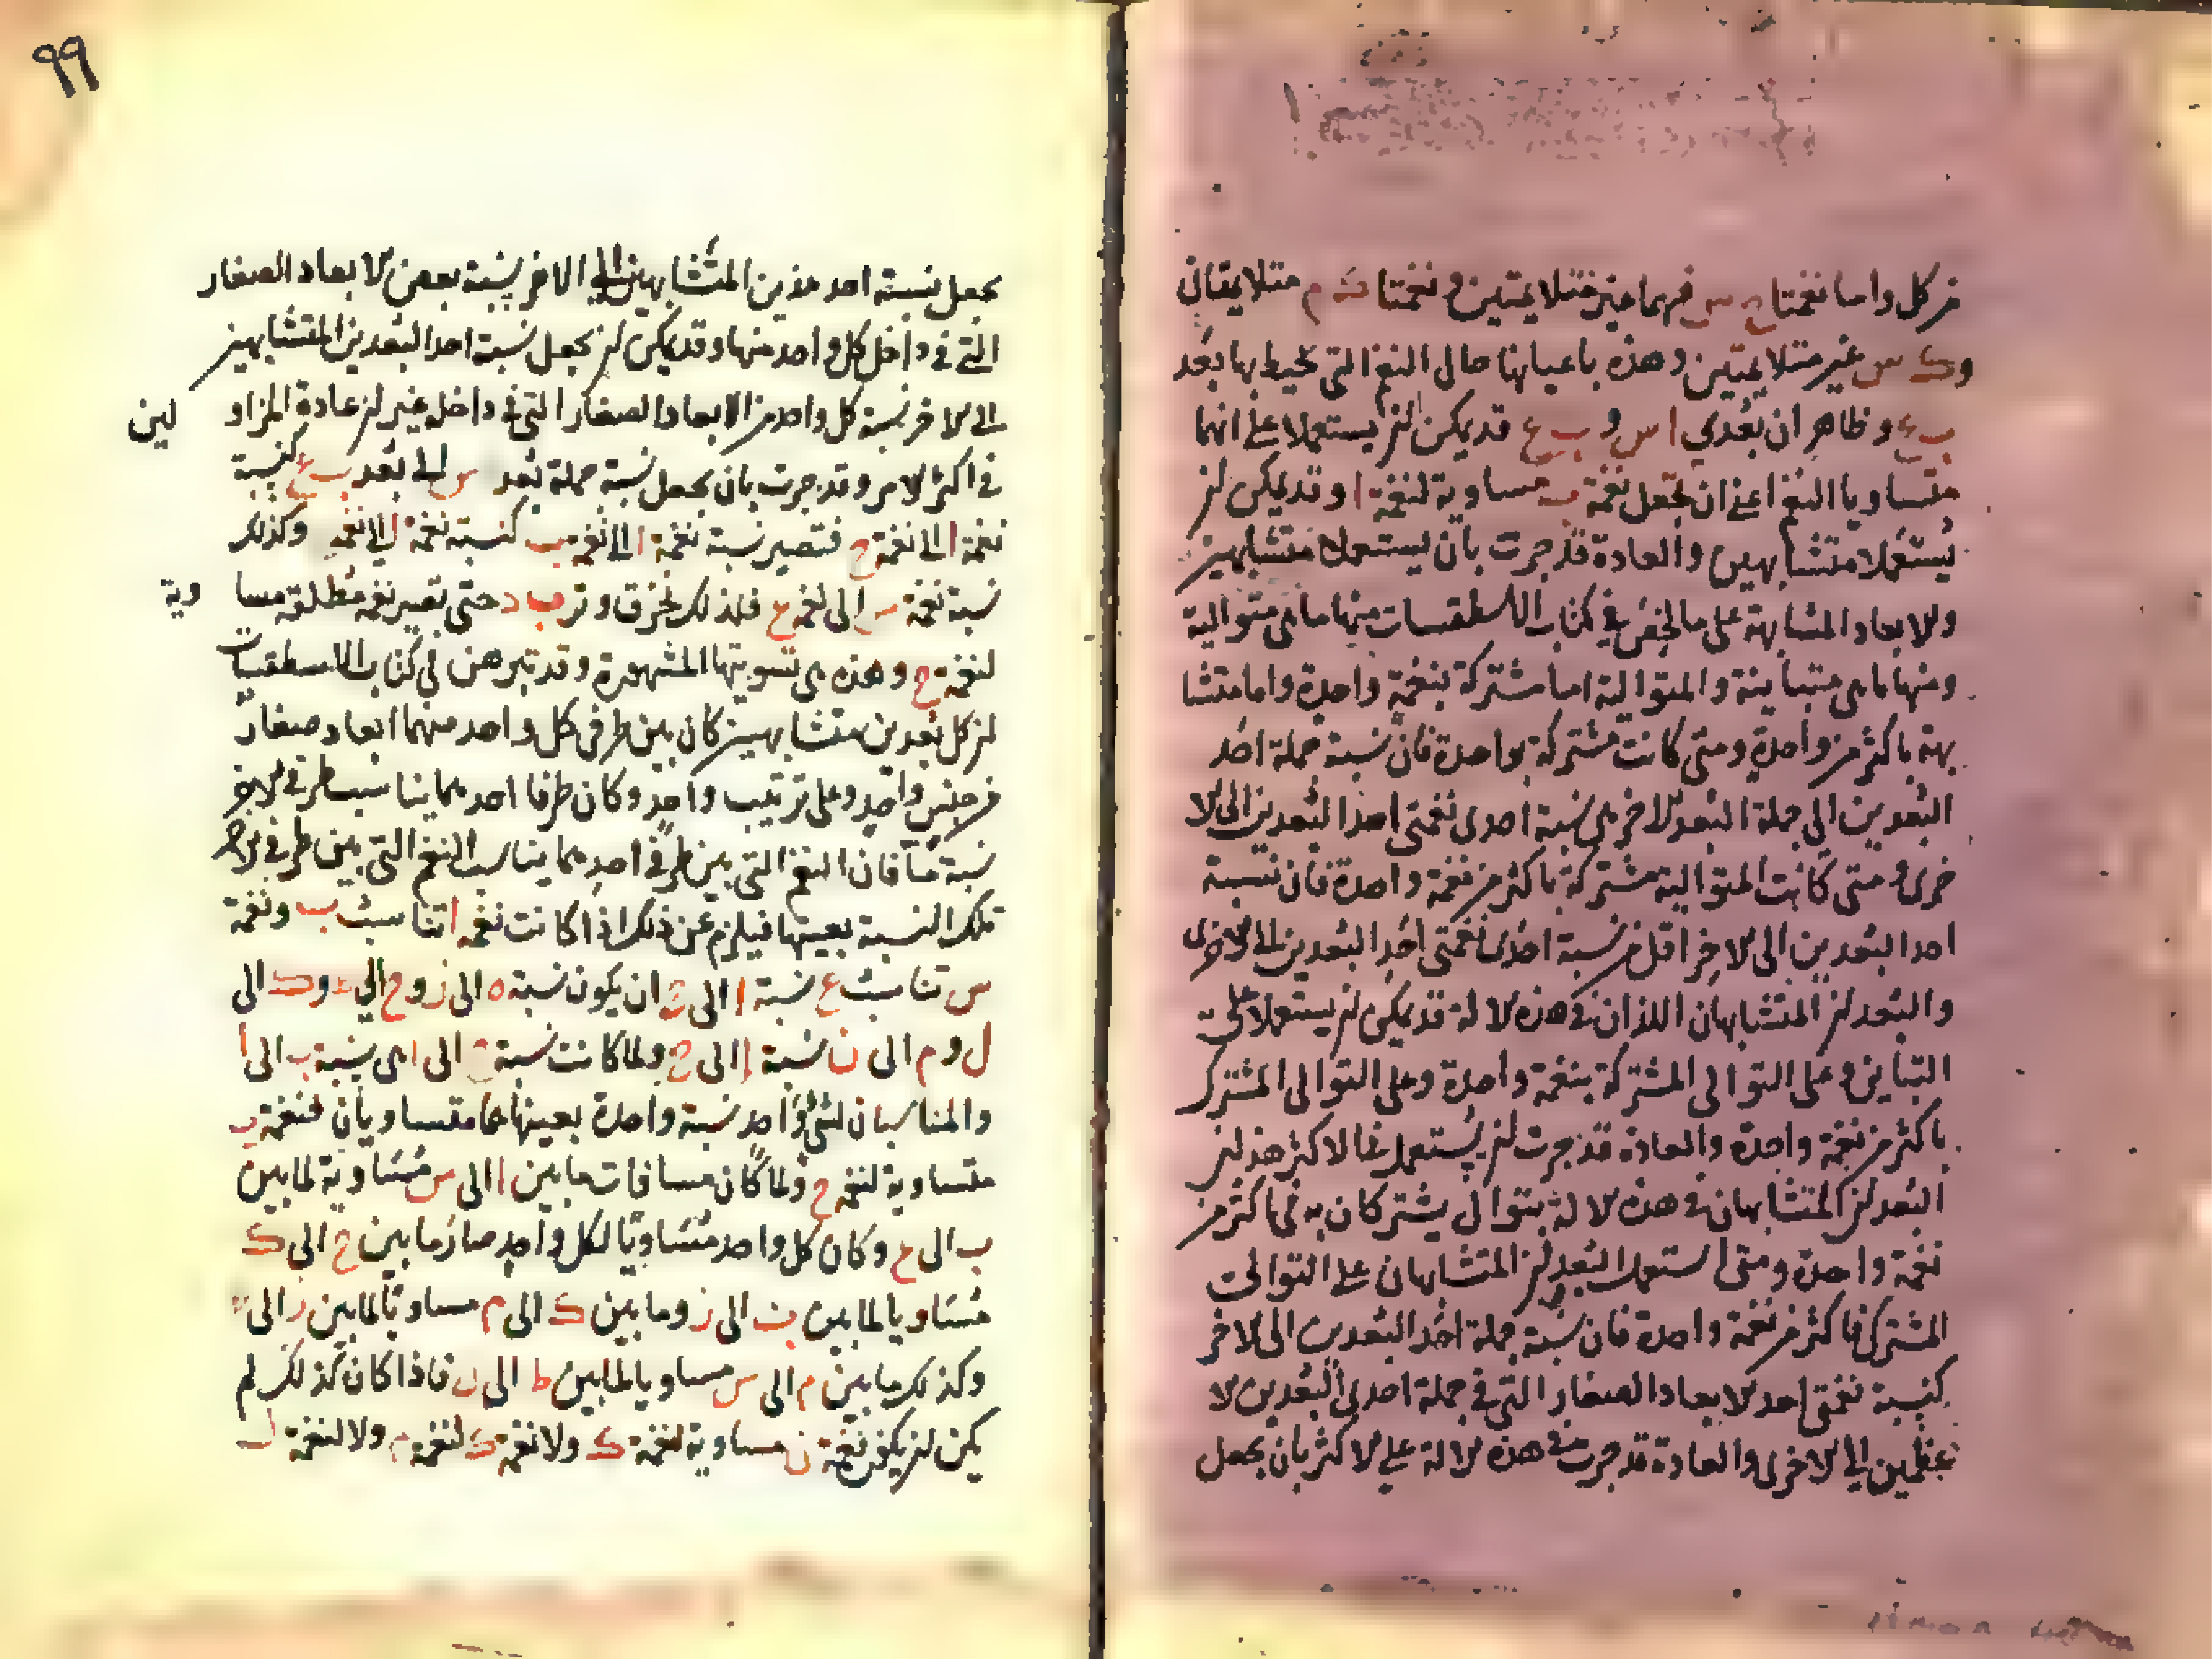 من كل واما نغمتا ع س فهما غير متلايمتين و نغمتا م متلايمتان
وك س غير متلايمتين وهذه باعيانها حال النغم التي تحيط بها بعد
ب ع وظاهر ان بعدي ا س و ب ع قد يمكن لن يستعملا على انهما
متساويا النغم اعني ان تجعل نغمة ب مساوية لنغمة ا وقد يمكن لن
يستعملا متشابهين والعادة قد جرت بان يستعملا متشابهين
والابعاد المتشابهة على ما لخص في كتاب الاسطقسات منها ما هي متوالية
ومنها ما هي متباينة والمتوالية اما مشتركة بنغمة واحدة واما متشا
بهة باكثر من واحدة ومتى كانت مشتركة بواحدة فان نسبة جملة احد
البعدين الى جملة البعد الاخر هي نسبة احدى نغمتي احد البعدين الى الا
خرى ومتى كانت المتوالية مشتركة باكثر من نغمة واحدة فان نسبة
احد البعدين الى الاخر اقل من نسبة احدى نغمتي احد البعدين الى الاخرى
والبعد لن المتشابهان اللذان في هذه الالة قد يمكن لن يستعملا على
التباين وعلى التوالي المشتركة بنغمة واحدة وعلى التوالي المشترك
باكثر من نغمة واحدة والعادة قد جرت لن يستعمل في الاكثر هذ لن
البعد لن المتشابهان في هذه الالة بتوال يشتركان به في اكثر من
نغمة واحدة ومتى استعمل البعد لن المتشابهان على التوالي
المشترك في اكثر من نغمة واحدة فان نسبة جملة احد البعدين الى الاخر
كنسبة نغمتي احد الابعاد الصغار التي في جملة احدى البعدين الا
عظمين الى الاخرى والعادة قد جرت في هذه الالة على الاكثر بان يجعل
٩٩
يجعل نسبة احد هذين المتشابهين الى الاخر نسبة بعض الابعاد الصغار
التي في داخل كل واحد منها وقد يمكن لن يجعل نسبة احد البعدين المتشابهين
الى الاخر نسبة كل واحد من الابعاد الصغار التي في داخل غير لن عادة المزاو لين
في اكثر الامر وقد جرت بان يجعل نسبة جملة بعد س الى بعد ب ع كنسبة
نغمة ا الى نغمة ح فتصير نسبة نغمة ا الى نغمة ب كنسبة نغمة الى نغمة وكذلك
نسبة نغمة س الى نغمة ع فلذلك يحزق وتر ب د حتى تصير نغمة مطلقه مسا وية
لنغمة ح وهذه هي تسويتها المشهورة وقد تبرهن في كتاب الاسطقسات
لن كل بعدين متشابهين كان بين طرفي كل واحد منهما ابعاد صغار
من جنس واحد وعلى ترتيب واحد وكان طرفا احدهما يناسب طرفي الاخر
نسبة ما فان النغم التي بين طرفي احدهما يناسب النغم التي بين طرفي الاخر
تلك النسبة بعينها فيلزم عن ذلك اذا كانت نغمة ا تناسب ب ونغمة
س تناسب ع نسبة ا الى ح ان يكون نسبة ه الى ز و ح الى وك الى
ل و م الى ن نسبة ا الى ح ولما كانت نسبة ح الى ا هي نسبة ب الى ا
والمناسبان لشئ واحد نسبة واحدة بعينها هما متساويان فنغمة ب
متساوية لنغمة ح ولما كان مسافات ما بين ا الى س مساوية لما بين
ب الى ع وكان كل واحد متساويا لكل واحد صار ما بين ح الى ك
مساويا لما بين ب الى ز وما بين ك الى م مساويا لما بين ز الى
وكذلك ما بين م الى س مساويا لما بين ط الى ن فاذا كان كذلك لم
يكن لن يكون نغمة ن مساوية لنغمة ك ولا نغمة ك لنغمة م ولا لنغمة ل